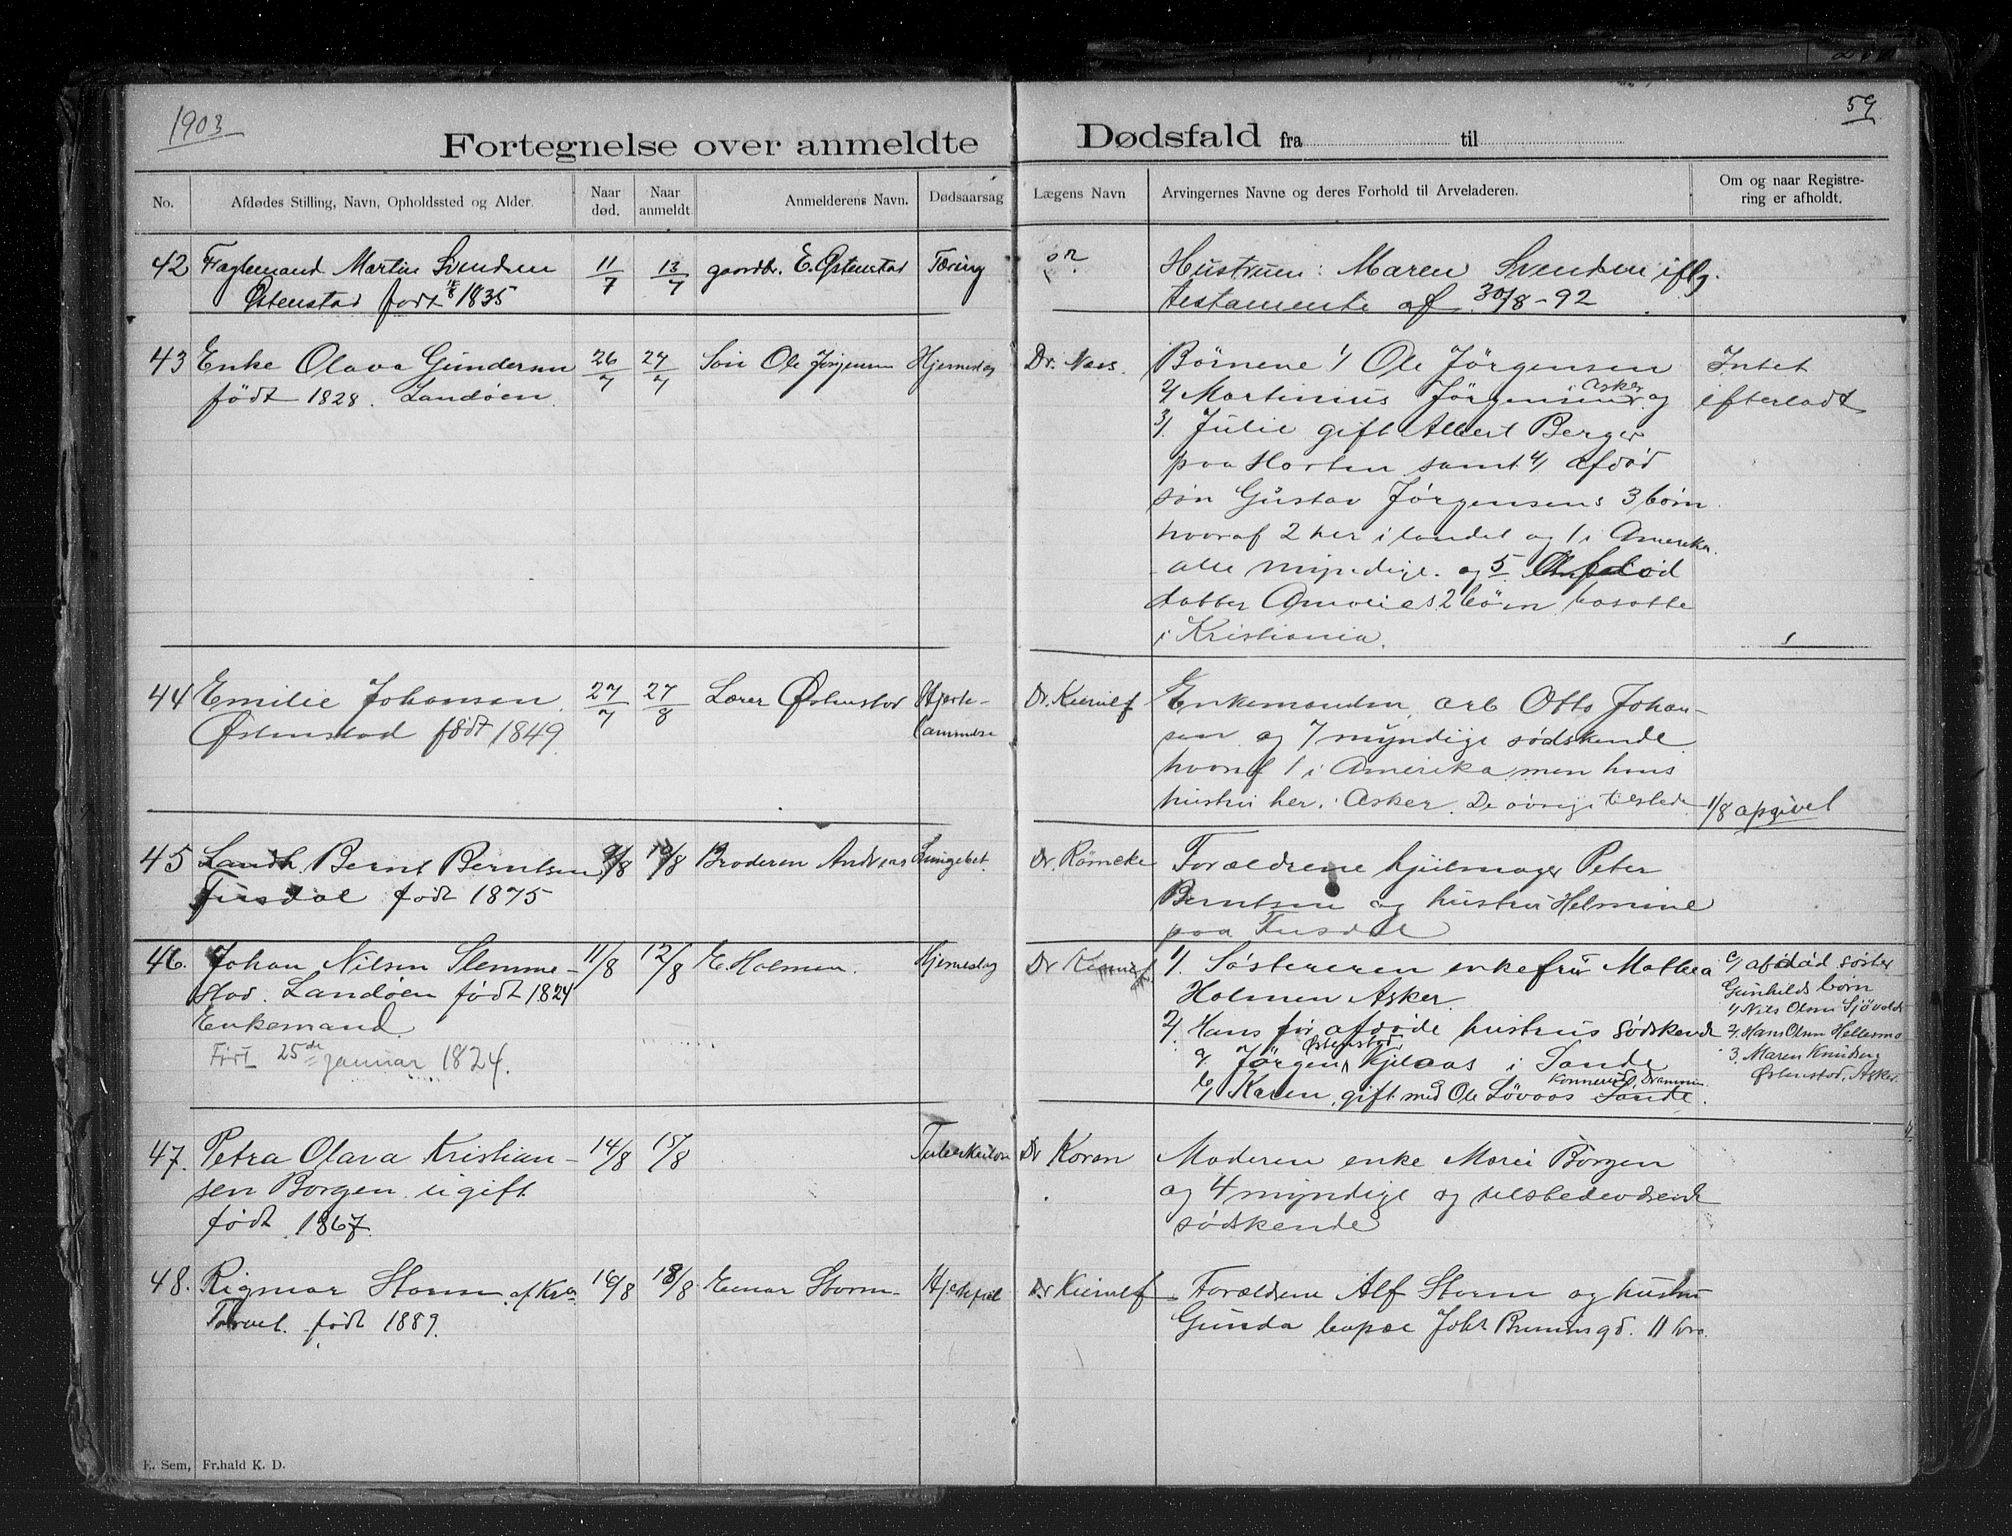 1903
59
Fortegnelse over anmeldte Dødsfald fra til
No.
Afdødes Stilling, Navn, Opholdssted og Alder.
Naar død.
Naar anmeldt
Anmelderens Navn.
Dødsaarsag
Lægens Navn
Arvingernes Navne og deres Forhold til Arveladeren.
Om og naar Registre-
ring er afholdt.
42 Martin Svendsen 11/7 13/7 gaardbr. E. Østenstad Tæring
Østenstad født 1835
Hustruen: Maren Svendsen iflg.
testamente af 30/8-92
43 Enke Olava Gundersen 26/7 27/7 Søn Ole Jørgensen Hjerneslag Dr. Næs.
født 1828. Landøen.
Børnene 1/ Ole Jørgensen
2/ Martinius Jørgensen i Asker og
3/. Julie gift Albert Berger
paa Horten samt 4/ afdød
søn Gustav Jørgensens 3 børn
hvoraf 2 her i landet og 1 i Amerika.
alle myndige. og 5. afdød
datter Amalies 2 børn, bosatte
i Kristiania.
Intet
efterladt
44 Emilie Johansen. 27/7 27/8 Lærer Østenstad Hjerte-
lammelse Dr. Kierulf
Østenstad født 1849.
Enkemanden, arb Otto Johan-
sen og 7 myndige sødskende
hvoraf 1 i Amerika men hans
hustru her i Asker. De øvrige tilstede
1/8 opgivet
45 Landh. Bernt Berntsen 9/8 10/8 Broderen Andreas Lungebet. Dr. Römcke
Fusdal født 1875
Forældrene hjulmager Peter
Berntsen og hustru Helmine
paa Fusdal
46. Johan Nilsen Slemme- 11/8 12/8 E. Holmen. Hjerneslag Dr Kierulf
stad. Landøen født 1824
Enkemand
Født 25de januar 1824.
1/. Søsteren enkefru Mathea
Holmen Asker
2/. Hans før afdøde hustrus sødskende
a/ Jørgen Østenstad, Kjilaas i Sande
b/ Karen, gift med Ole Løvaas Sande.
Konnerud, Drammen
c/ afdød søster
Gunhilds børn
1/ Nils Olsen Sjøvold
2/. Hans Olsen Hellesmo
3. Maren Knudsen
Østenstad, Asker.
47. Petra Olava Kristian- 14/8 15/8 Dr Koren
sen Borgen ugift
født 1867.
Moderen enke Marie Borgen
og 4 myndige og tilstedeværende
sødskende
48. Rigmor Storm af Kra 16/8 18/8 Einar Storm Hjertefeil Dr Kierulf
født 1889.
Forældrene Alf Storm og hustru
Gunda
E. Sem, Fr.hald K. D.